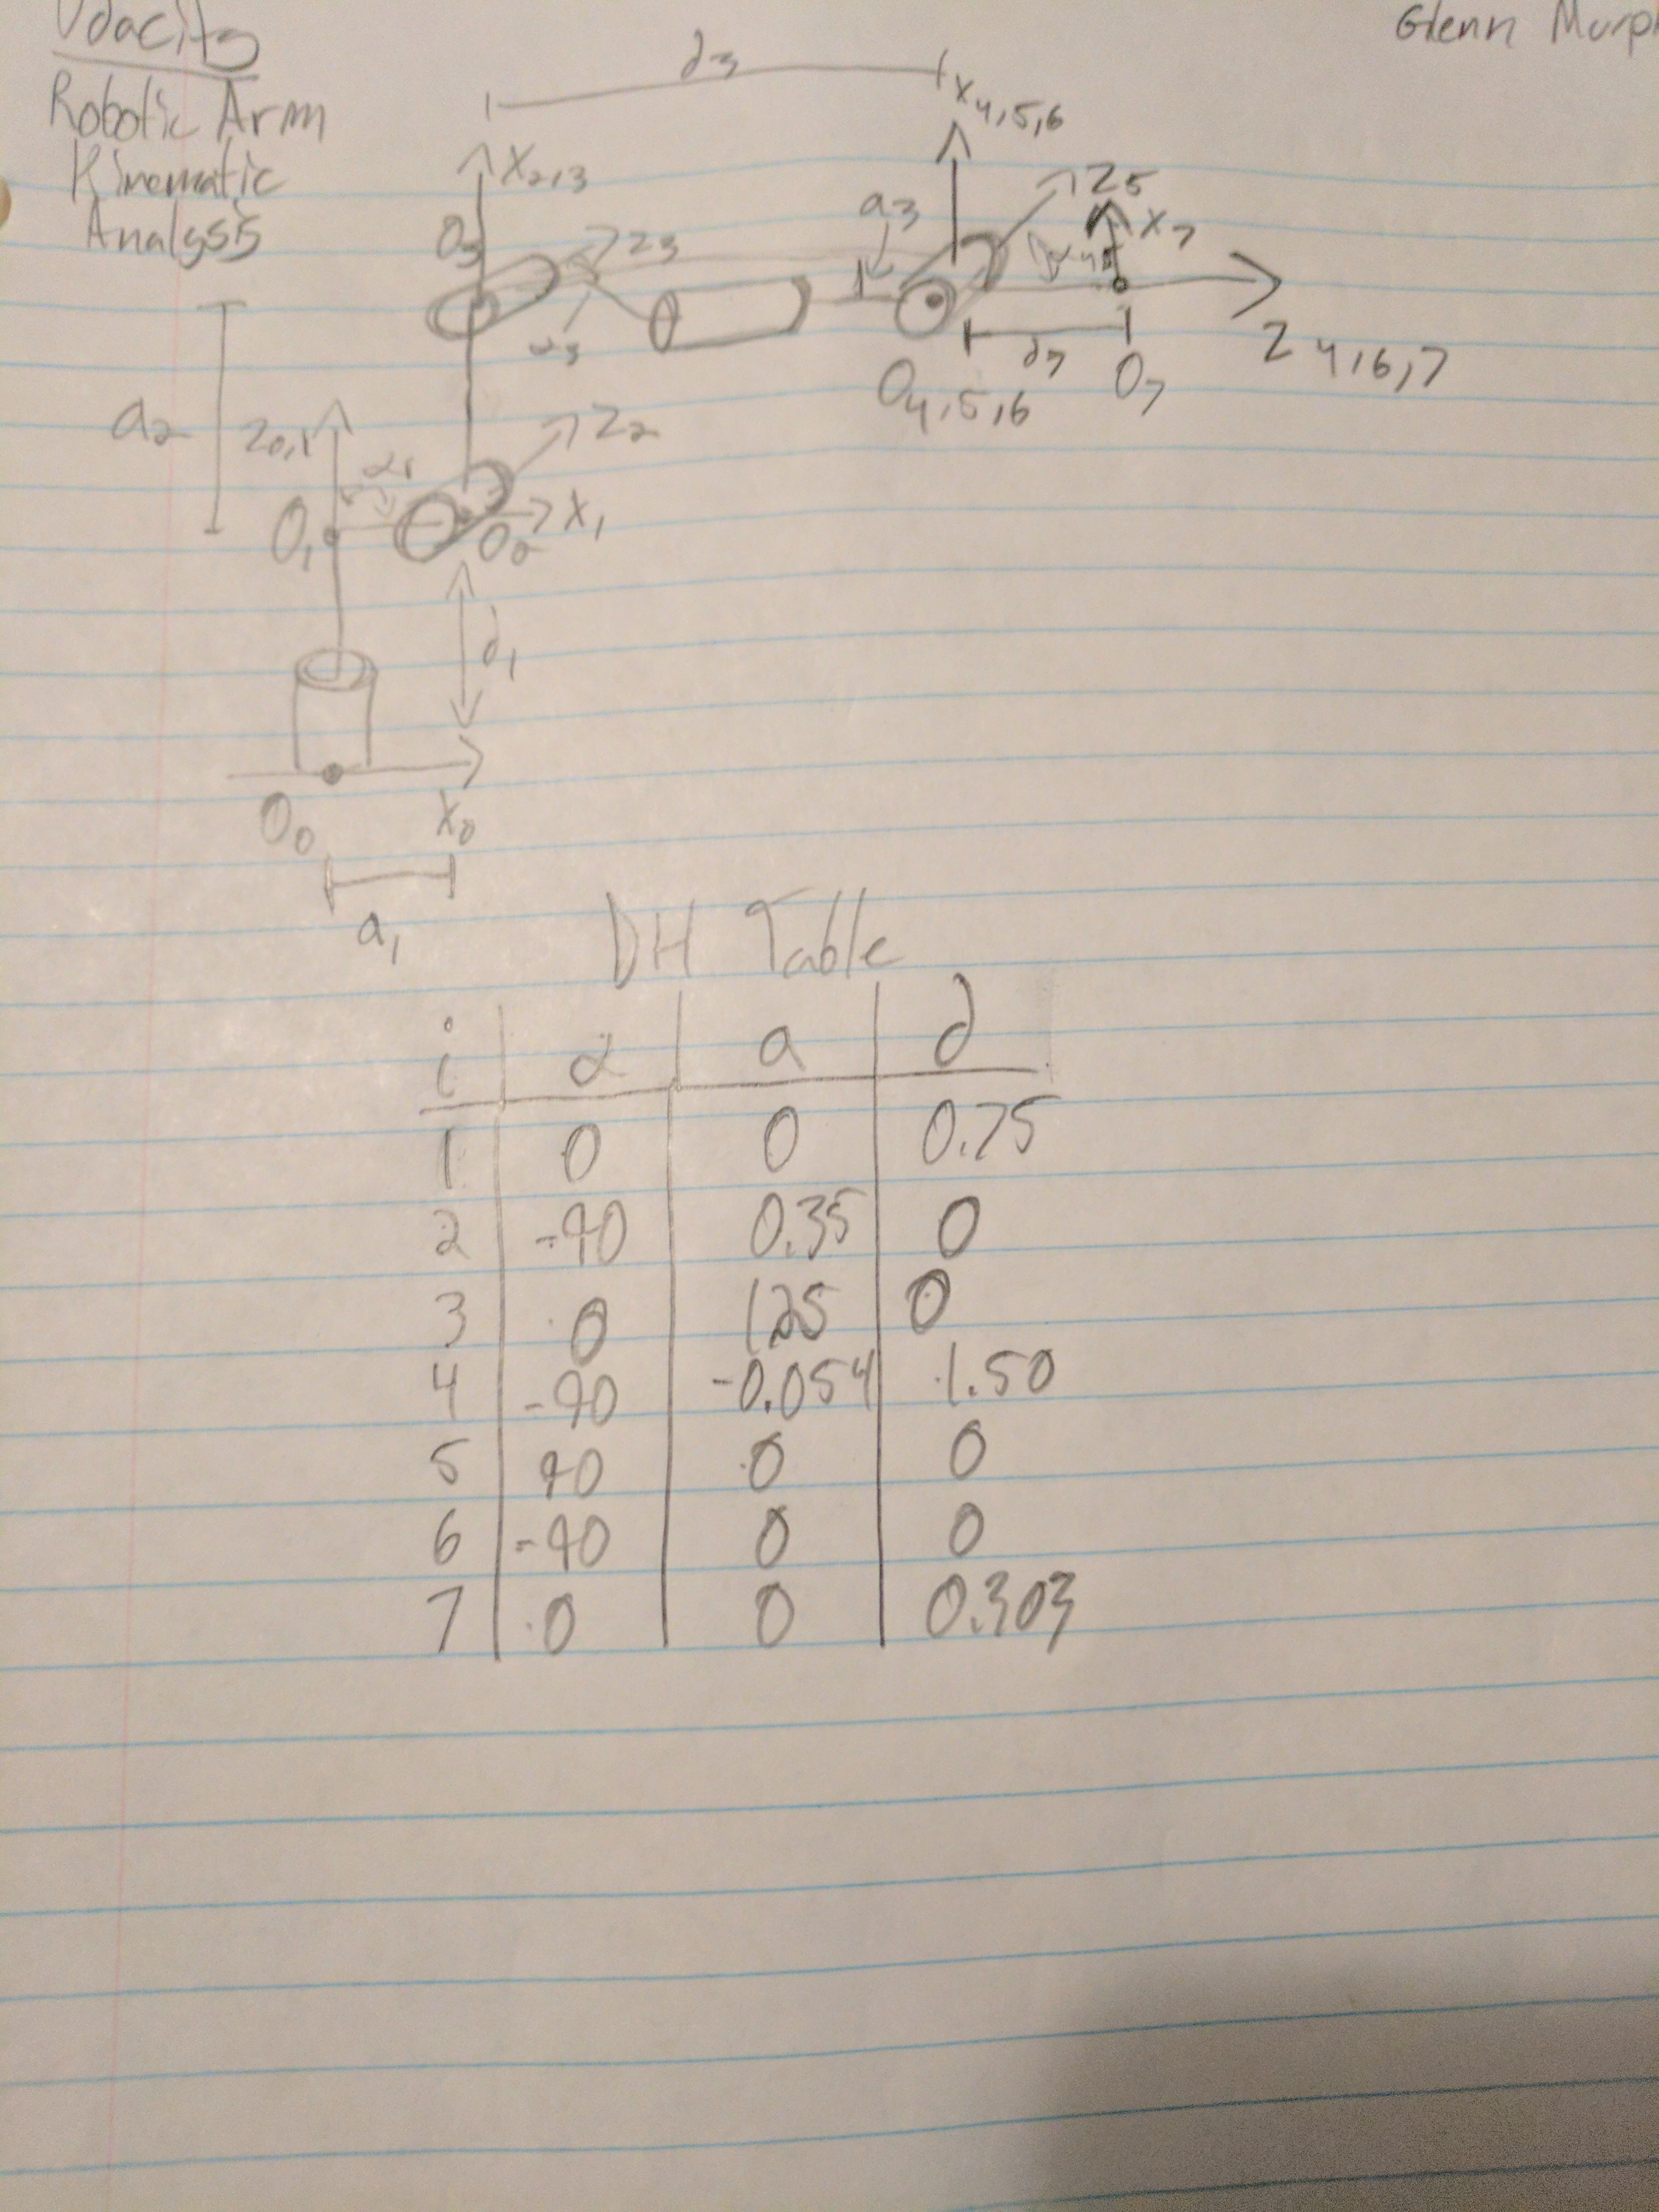 Udacity
Glenn Murp
Robotic Arm
Kinematic
Analysis
d3
X4,5,6
X2,3
Z5
a3
X7
O3
Z3
α3
d7
Z4,6,7
O4,5,6
O7
a2
Z0,1
Z2
α1
O1
X1
O2
d1
O0
X0
a1
DH Table
i α a d
1 0 0 0.75
2 -90 0.35 0
3 0 1.25 0
4 -90 -0.054 1.50
5 90 0 0
6 -90 0 0
7 0 0 0.303